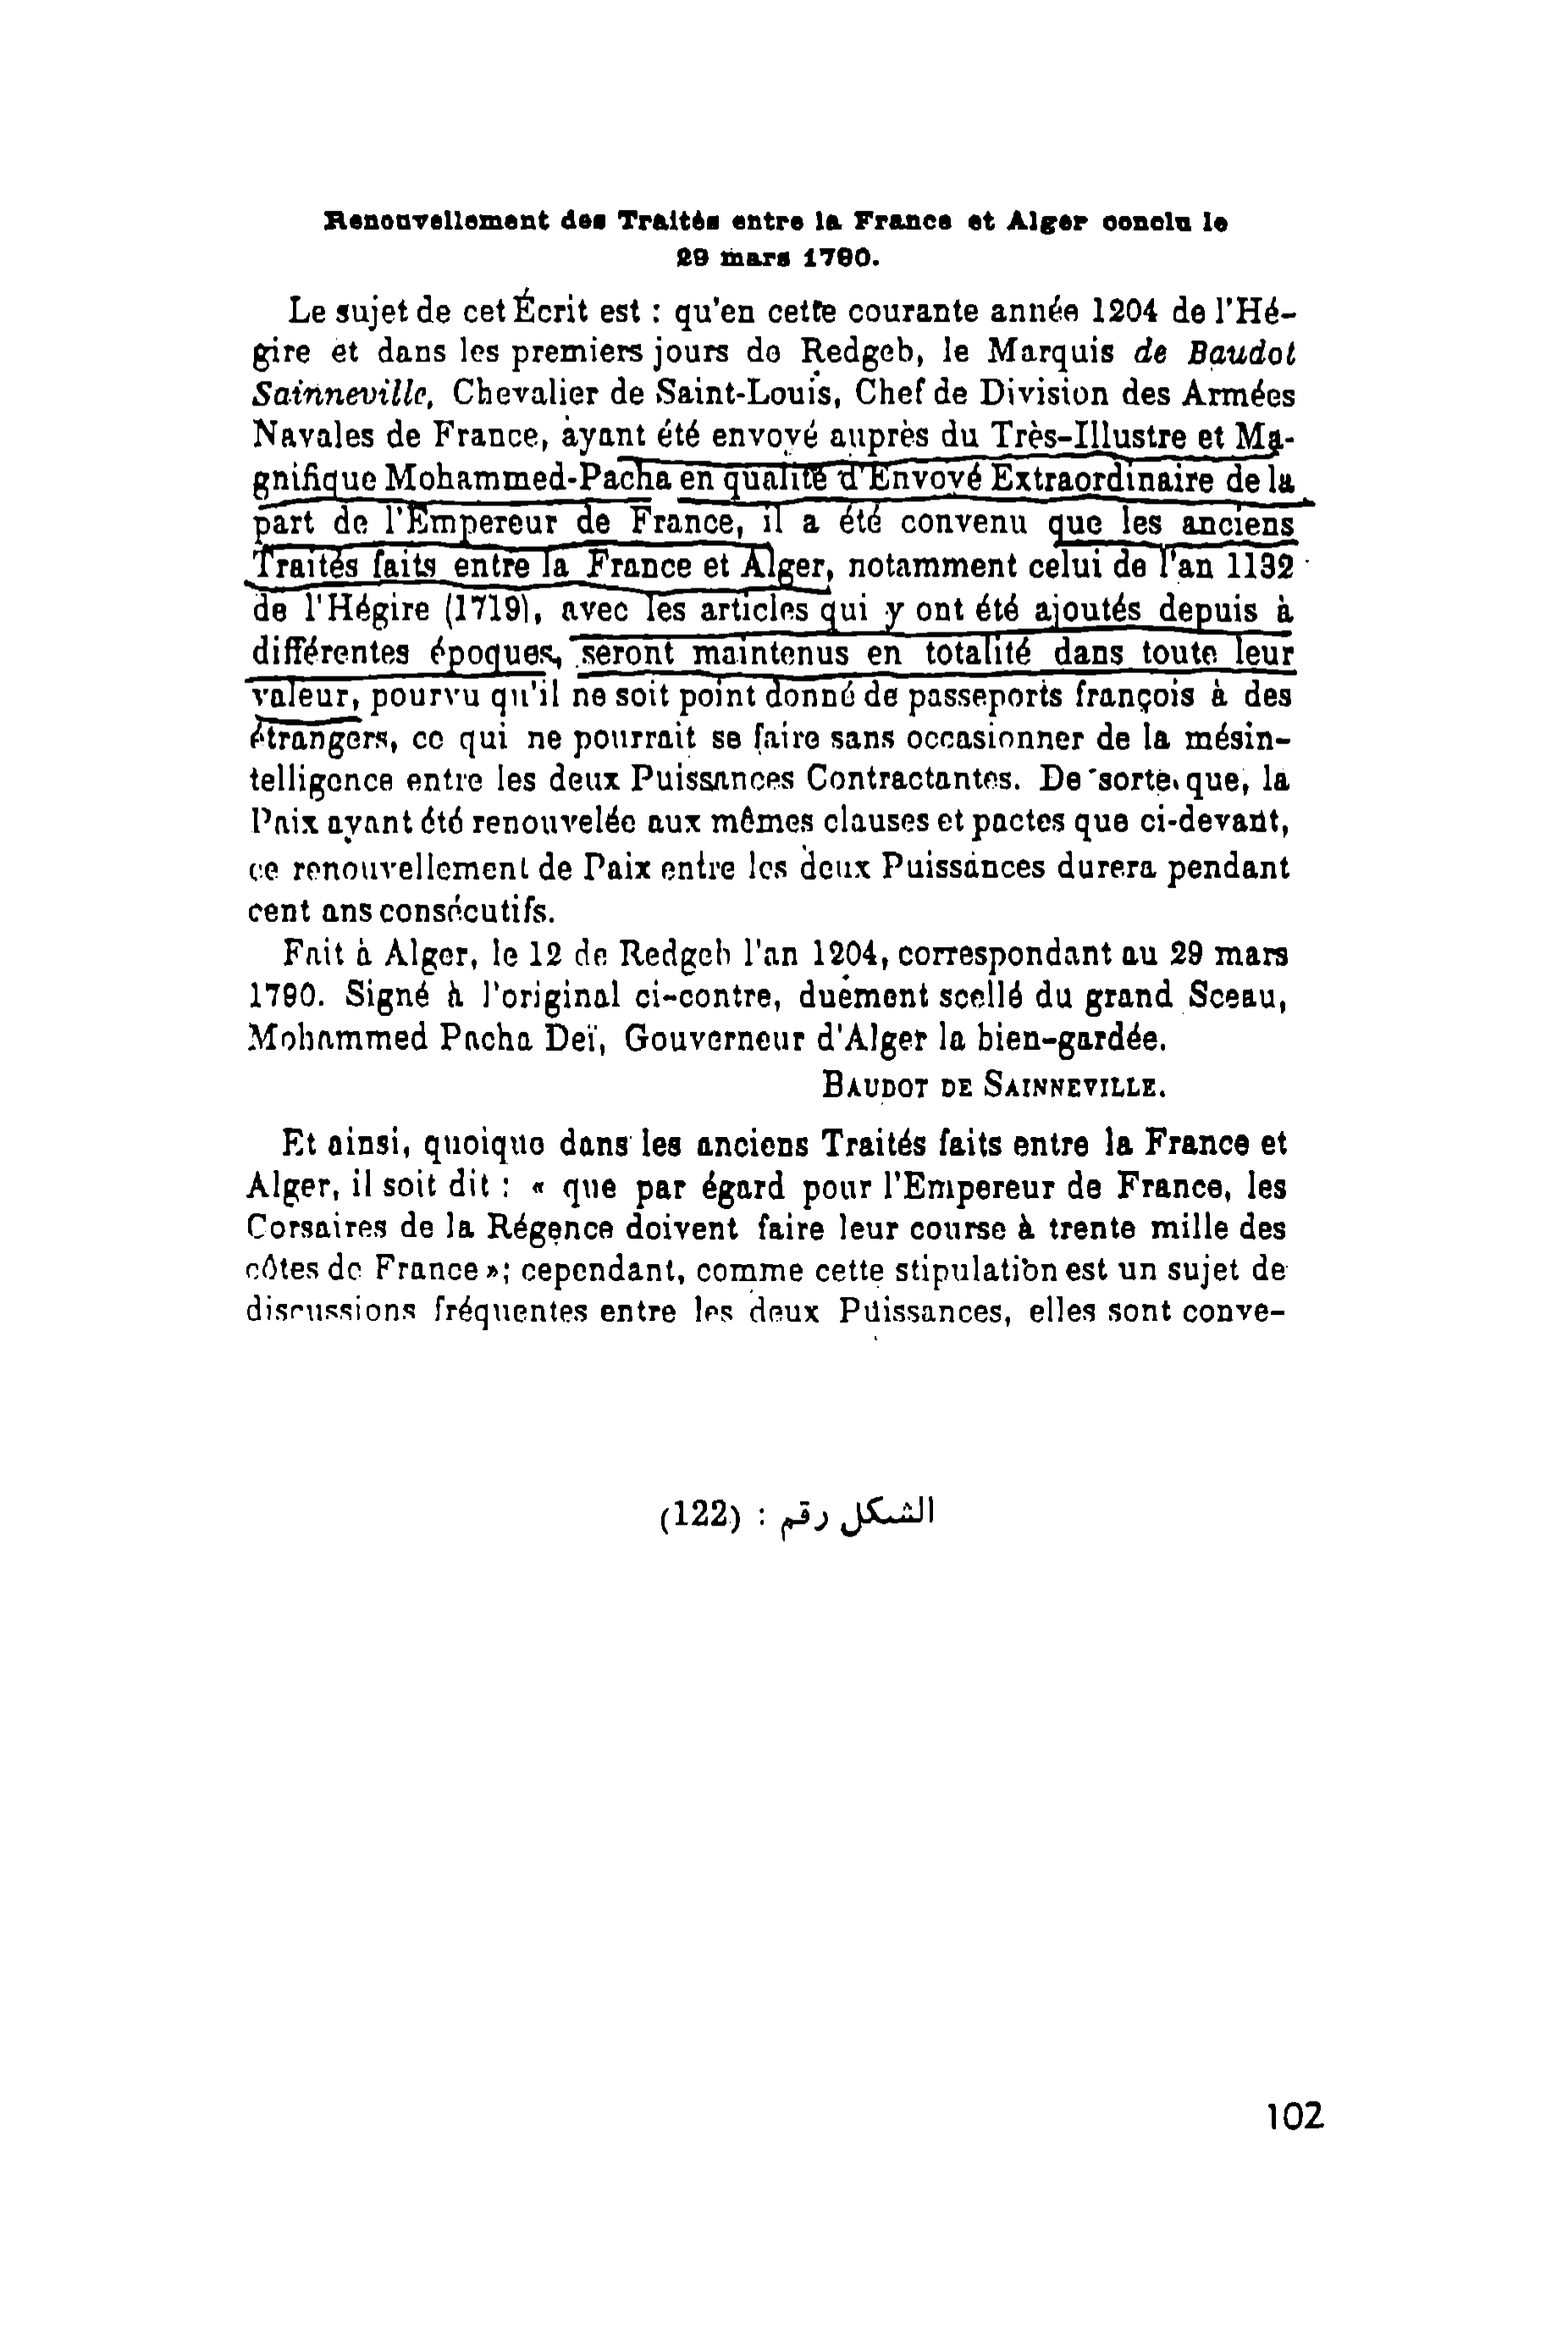 Renouvellement des Traités entre la France et Alger conclu le
29 mars 1790.
Le sujet de cet Écrit est : qu'en cette courante année 1204 de l'Hé-
gire et dans les premiers jours de Redgeb, le Marquis de Baudot
Sainneville, Chevalier de Saint-Louis, Chef de Division des Armées
Navales de France, ayant été envoyé auprès du Très-Illustre et Ma-
gnifique Mohammed-Pacha en qualité d'Envoyé Extraordinaire de la
part de l'Empereur de France, il a été convenu que les anciens
Traités faits entre la France et Alger, notamment celui de l'an 1132
de l'Hégire (1719), avec les articles qui y ont été ajoutés depuis à
différentes époques, seront maintenus en totalité dans toute leur
valeur, pourvu qu'il ne soit point donné de passeports françois à des
étrangers, ce qui ne pourrait se faire sans occasionner de la mésin-
telligence entre les deux Puissances Contractantes. De sorte que, la
Paix ayant été renouvelée aux mêmes clauses et pactes que ci-devant,
ce renouvellement de Paix entre les deux Puissances durera pendant
cent ans consécutifs.
Fait à Alger, le 12 de Redgeb l'an 1204, correspondant au 29 mars
1790. Signé à l'original ci-contre, duement scellé du grand Sceau,
Mohammed Pacha Deï, Gouverneur d'Alger la bien-gardée.
BAUDOT DE SAINNEVILLE.
Et ainsi, quoique dans les anciens Traités faits entre la France et
Alger, il soit dit : « que par égard pour l'Empereur de France, les
Corsaires de la Régence doivent faire leur course à trente mille des
côtes de France »; cependant, comme cette stipulation est un sujet de
discussions fréquentes entre les deux Puissances, elles sont conve-
الشكل رقم : (122)
102